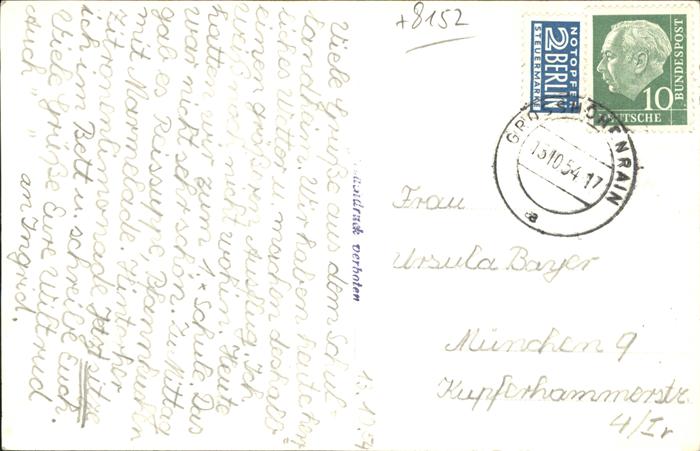 +8152
NOTOPFER
2 BERLIN
STEUERMARKE
DEUTSCHE
BUNDESPOST
10
13.10.54.17
a
Nachdruck verboten
13.10.54
Viele Grüße aus dem Schul-
landheim. Wir haben heute herr-
liches Wetter u. machen deshalb
einen größeren Ausflug. Ich
weiß noch nicht wohin. Heute
hatten wir zum 1x Schule. Das
war nicht sehr schön. Zu Mittag
gab es Reissuppe, Pfannkuchen
mit Marmelade. Hinterher
Zitronenlimonade. Jetzt sitze
ich im Bett u. schreibe Euch.
Viele Grüße Eure Wiltrud
auch " " an Ingrid.
Frau
Ursula Bayer
München 9
Kupferhammerstr
4/Ir